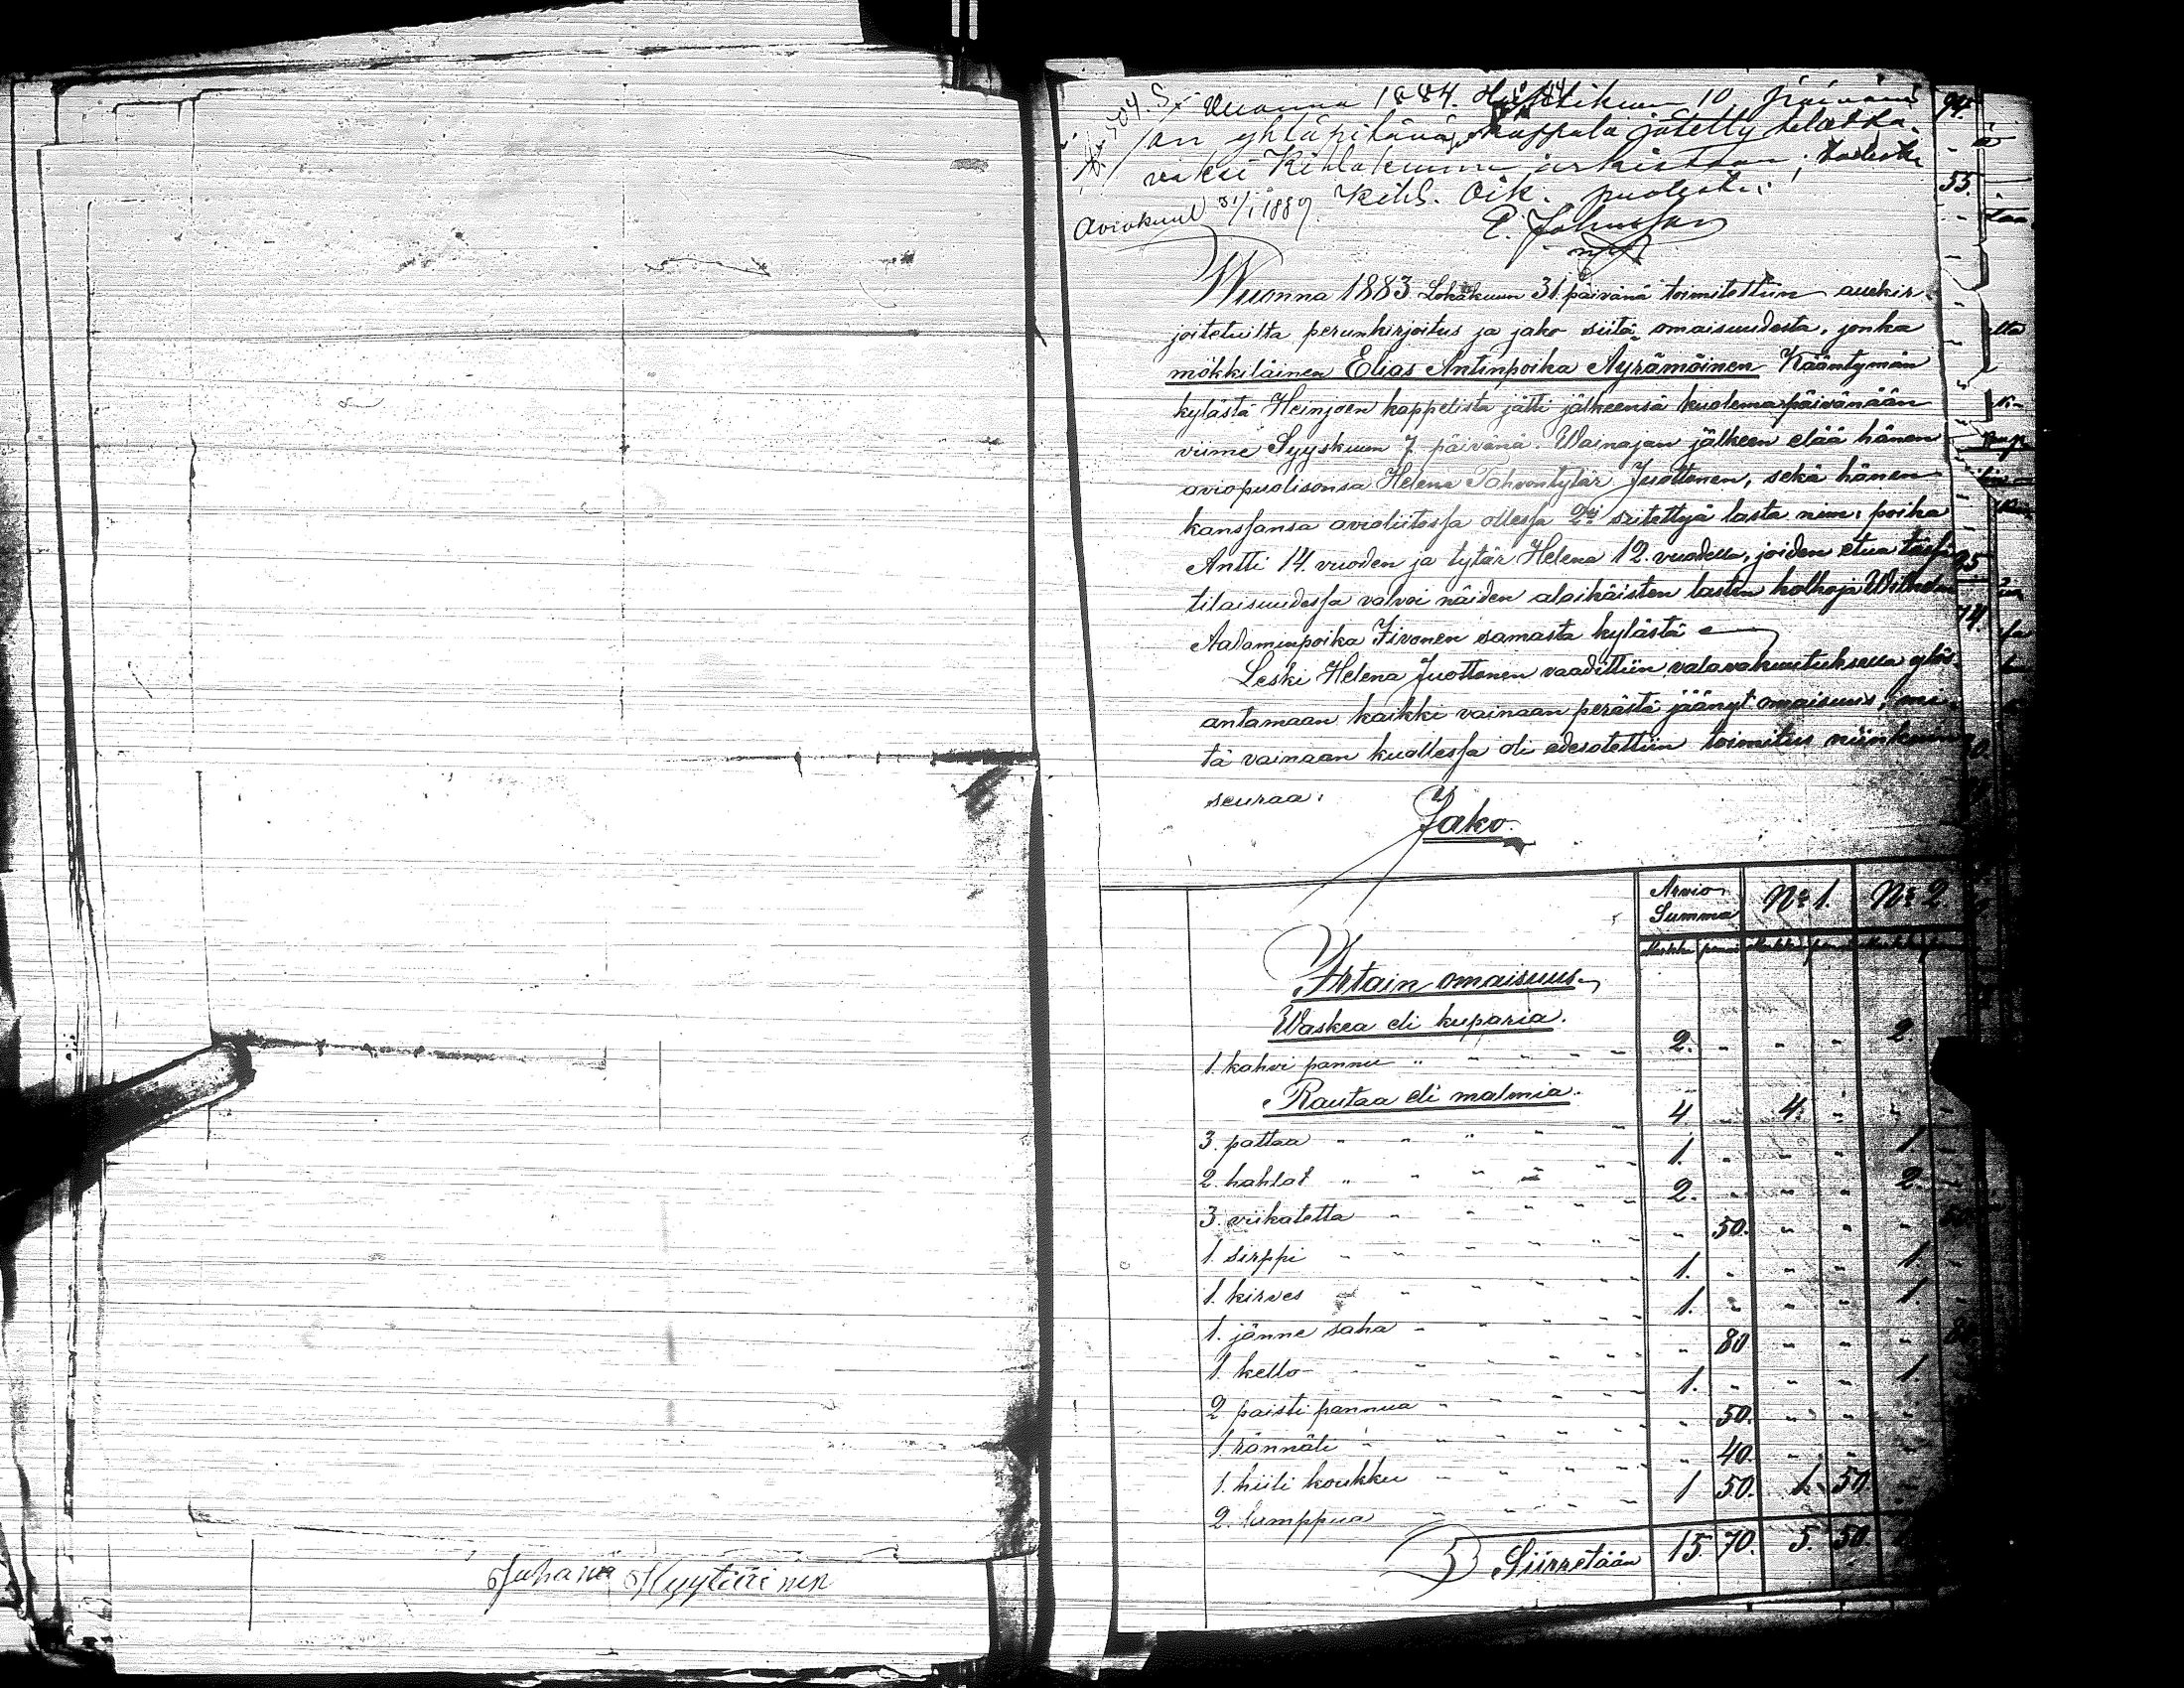 Juhana Kyytiäinen
Vuonna 1884. Huhtikuun 10 päivänä
on yhtäpitävä kappale jätetty talletta-
vaksi Kihlakunnan arkistoon; todistaa
Kihl. Oik. puolesta:
Aviokuul 31/1 1889.
E. Johnsson
Wuonna 1883 Lokakuun 31. päivänä toimitettiin auekir-
joitetuilta perunkirjoitus ja jako siitä omaisuudesta, jonka
mökkiläinen Elias Antinpoika Äyrämöinen Kääntymän
kylästä Heinjoen kappelista jätti jälkeensä kuolemapäivänään
viime Syyskuun 7 päivänä. Wainajan jälkeen elää hänen
aviopuolisonsa Helena Tahvontytär Juottonen, sekä hänen
kanssansa avioliitossa ollessa 2si siitettyä lasta nim: poika
Antti 14. vuoden ja tytär Helena 12. vuodella, joiden etua tässä
tilaisuudessa valvoi näiden alaikäisten lasten holhoja Wilhelm
Aadaminpoika Iivonen samasta kylästä
Leski Helena Juottonen vaadittiin valavakuutuksella ylös
antamaan kaikki vainaan perästä jäänyt omaisuus, mi-
tä vainaan kuollessa oli edesotettiin toimitus niinkuin
seuraa:
Jako
Arvio Summa No 1. No 2.
Markka penniä Markka penniä Markka penniä
Irtain omaisuus
Waskea eli kuparia.
1. kahvi pannu " - - - - 2. - - - 2.
Rautaa eli malmia.
3. pattaa - - " - - 4. - 4. - - -
2. hahlat " - " - - 1. - - - 1. -
3. viikatetta - - - - - 2. - - - 2. -
1. sirppi - - - " - - 50. - - - 50
1. kirves - - - - - 1. - - - 1. -
1. jänne saha - - - - - 1. - - - 1. -
1. kello - - - - - 80 - - - 80
2 paisti pannua - - - - 1. - - - 1
1. rännäli - - - - - 50. - - -
1. hiili koukku - - - - - 40. - - -
2. lumppua - - - - 1 50. 1. 50. -
Siirretään 15. 70. 5. 50.